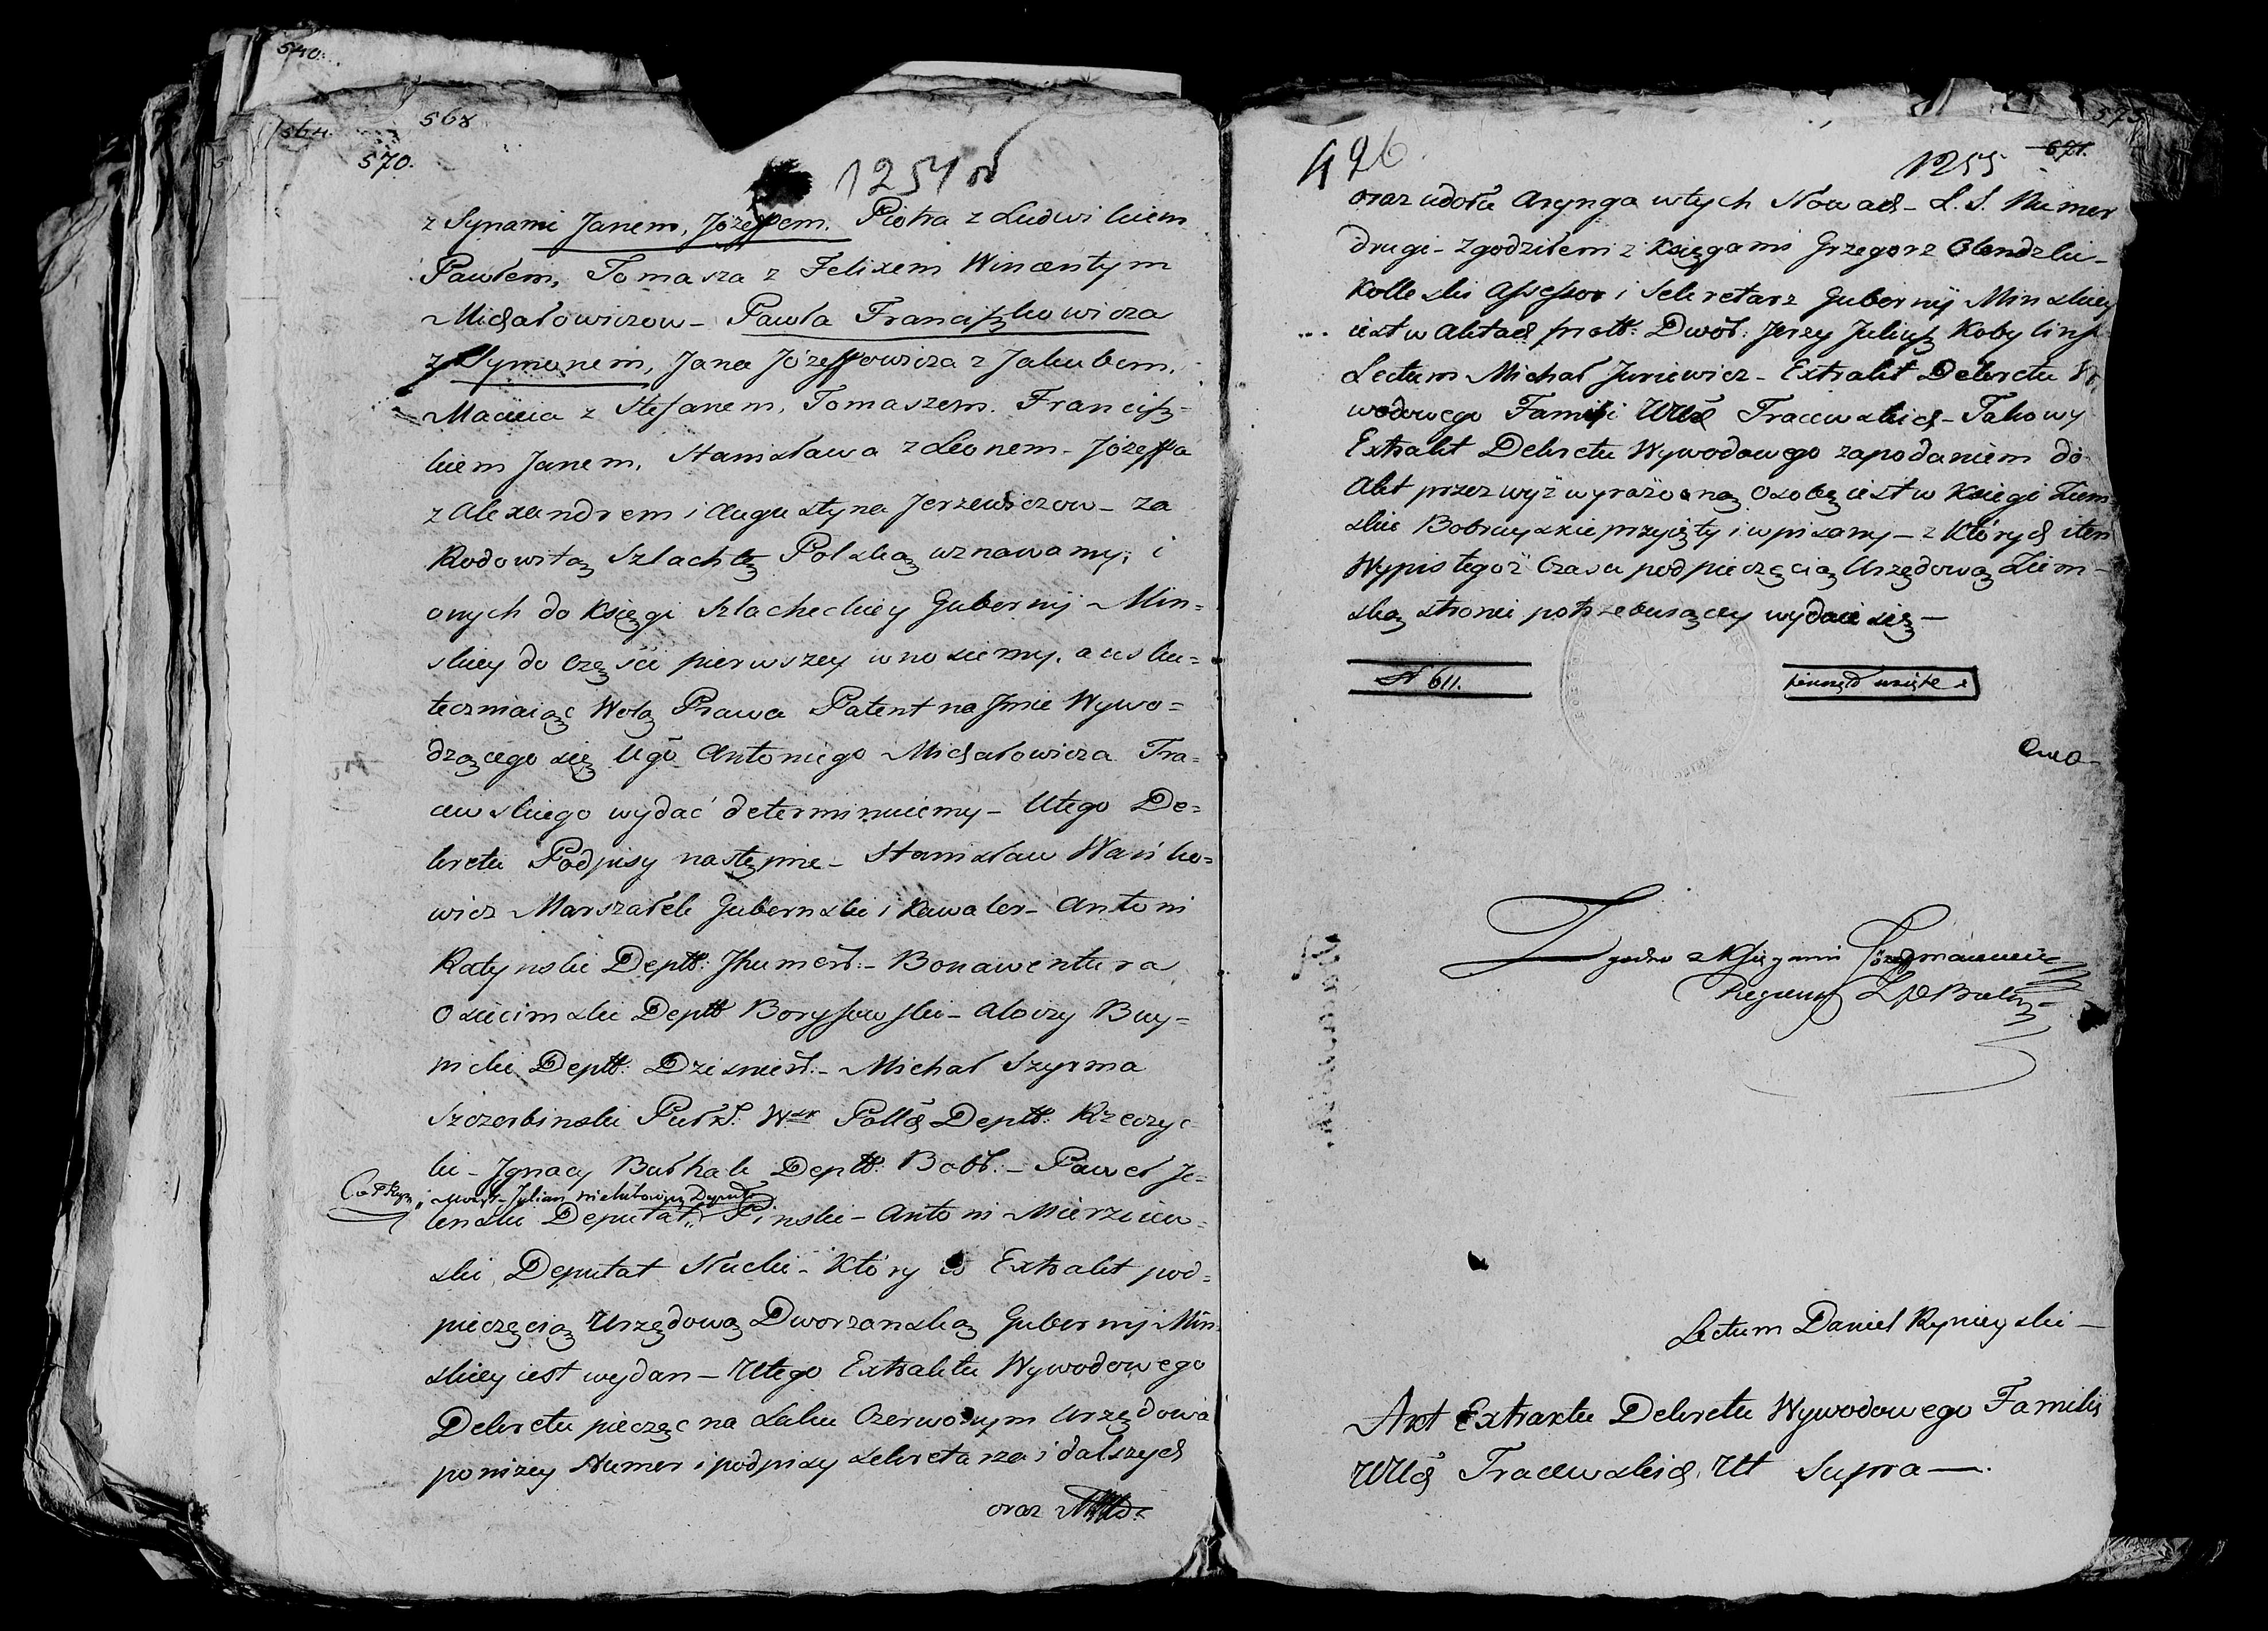 540.
564
568
570.
1254 od
z Synami Janem, Józeffem. Piotra z Ludwikiem
Pawłem, Tomasza z Felixem Wincentym
Michałowiczow – Pawła Franciszkowicza
z Symonem, Jana Józeffowicza z Jakubem,
Macieia z Stefanem, Tomaszem. Francisz=
kiem Janem, Stanisława z Leonem – Józeffa
z Alexandrem i Augustyna Jerzewiczow – za
Rodowitą Szlachtę Polską uznawamy; i
onych do Księgi Szlacheckiey Gubernij Min=
skiey do Częsci pierwszey wnosiemy, a usku=
teczniaiąc Wolą Prawa Patent na Jmie Wywo=
dzącego się Ugo Antoniego Michałowicza Tra=
cewskiego wydać determinuiemy – U tego De=
kretu Podpisy następne – Stanisław Wańko=
wicz Marszałek Gubernski i Kawaler – Antoni
Ratynski Deptt: Jhumeń: – Bonawentura
Osiecimski Deptt Boryssowski – Aloizy Buy=
nicki Deptt: Dzisnień: – Michał Szyrma
Szczerbinski Pułk. Wsk Pollch Deptt: Rzeczyc
ki – Jgnacy Bułhak Deptt: Bobr: – Paweł Je=
Mozyr – Julian Deputt
lenski Deputat Pinski – Antoni Mierzeiew=
ski Deputat Słucki – Który to Extrakt pod=
pieczęcią Urzędową Dworzanską Gubernij Min=
skiey iest wydan – U tego Extraktu Wywodowego
Dekretu pieczęc na Laku Czerwonym Urzędowa
poniżey Numer i podpisy Sekretarza i dalszych
oraz
496
575
1255 571.
oraz u dołu Arynga w tych Słowach – L. S. Numer
drugi – Zgodziłem z Księgami Grzegorz Olendzki –
Kolleski Assessor i Sekretarz Gubernij Minskiey
iest w Aktach Jerzy Juliusz Kobylins
Lectum Michał Juriewicz – Extrakt Dekretu Wy
wodowego Familii WWch Tracewskich – Takowy
Extrakt Dekretu Wywodowego za podaniem do
Akt przez wyż wyrażoną Osobę iest w Księgi Ziem=
skie Bobruyskie przyięty i wpisany – z Których i ten
Wypis tegoż Czasu pod pieczęcią Urzędową Ziem=
ską stronie potrzebuiącey wydaie się –
N 611.
Zgodno z Księgami
Regent
Lectum Daniel Rynieyski –
Akt Extraktu Dekretu Wywodowego Familij
WWch Tracewskich, Ut Supra –.